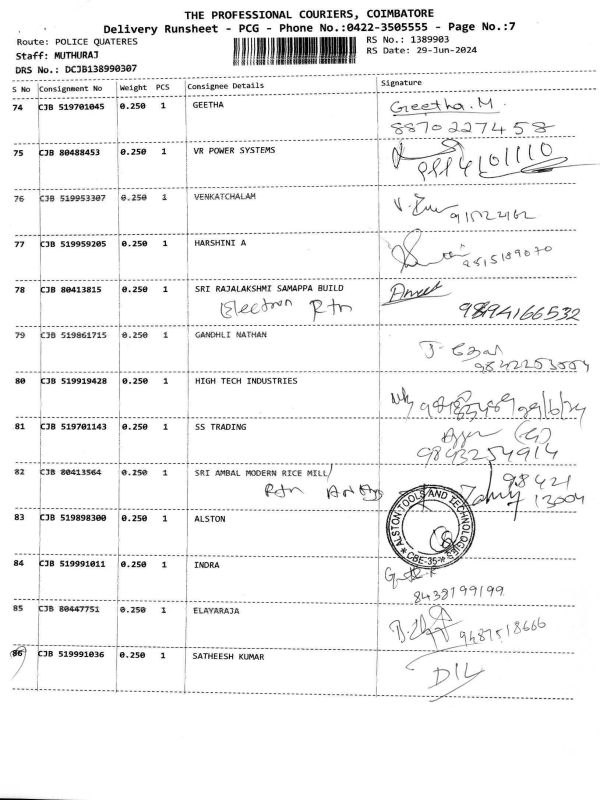 THE PROFESSIONAL COURIERS, COIMBATORE
Delivery Runsheet - PCG - Phone No.:0422-3505555 - Page No.:7
Route: POLICE QUATERES
RS No.: 1389903
Staff: MUTHURAJ
RS Date: 29-Jun-2024
DRS No.: DCJB138990307
S No Consignment No Weight PCS Consignee Details Signature
74 CJB 519701045 0.250 1 GEETHA Greetha.M.
8870227458
75 CJB 80488453 0.250 1 VR POWER SYSTEMS
76 CJB 519953307 0.250 1 VENKATCHALAM
77 CJB 519959205 0.250 1 HARSHINI A
9515189070
78 CJB 80413815 0.250 1 SRI RAJALAKSHMI SAMAPPA BUILD
Election Rtn 9894166532
79 CJB 519861715 0.250 1 GANDHLI NATHAN
80 CJB 519919428 0.250 1 HIGH TECH INDUSTRIES
81 CJB 519701143 0.250 1 SS TRADING
9843254914
82 CJB 80413564 0.250 1 SRI AMBAL MODERN RICE MILL
Rtn
98421
13004
83 CJB 519898300 0.250 1 ALSTON
ALSTON TOOLS AND TECHNOLOGIES
* CBE-35 *
84 CJB 519991011 0.250 1 INDRA
8438199199
85 CJB 80447751 0.250 1 ELAYARAJA
9487518666
86 CJB 519991036 0.250 1 SATHEESH KUMAR
DIL